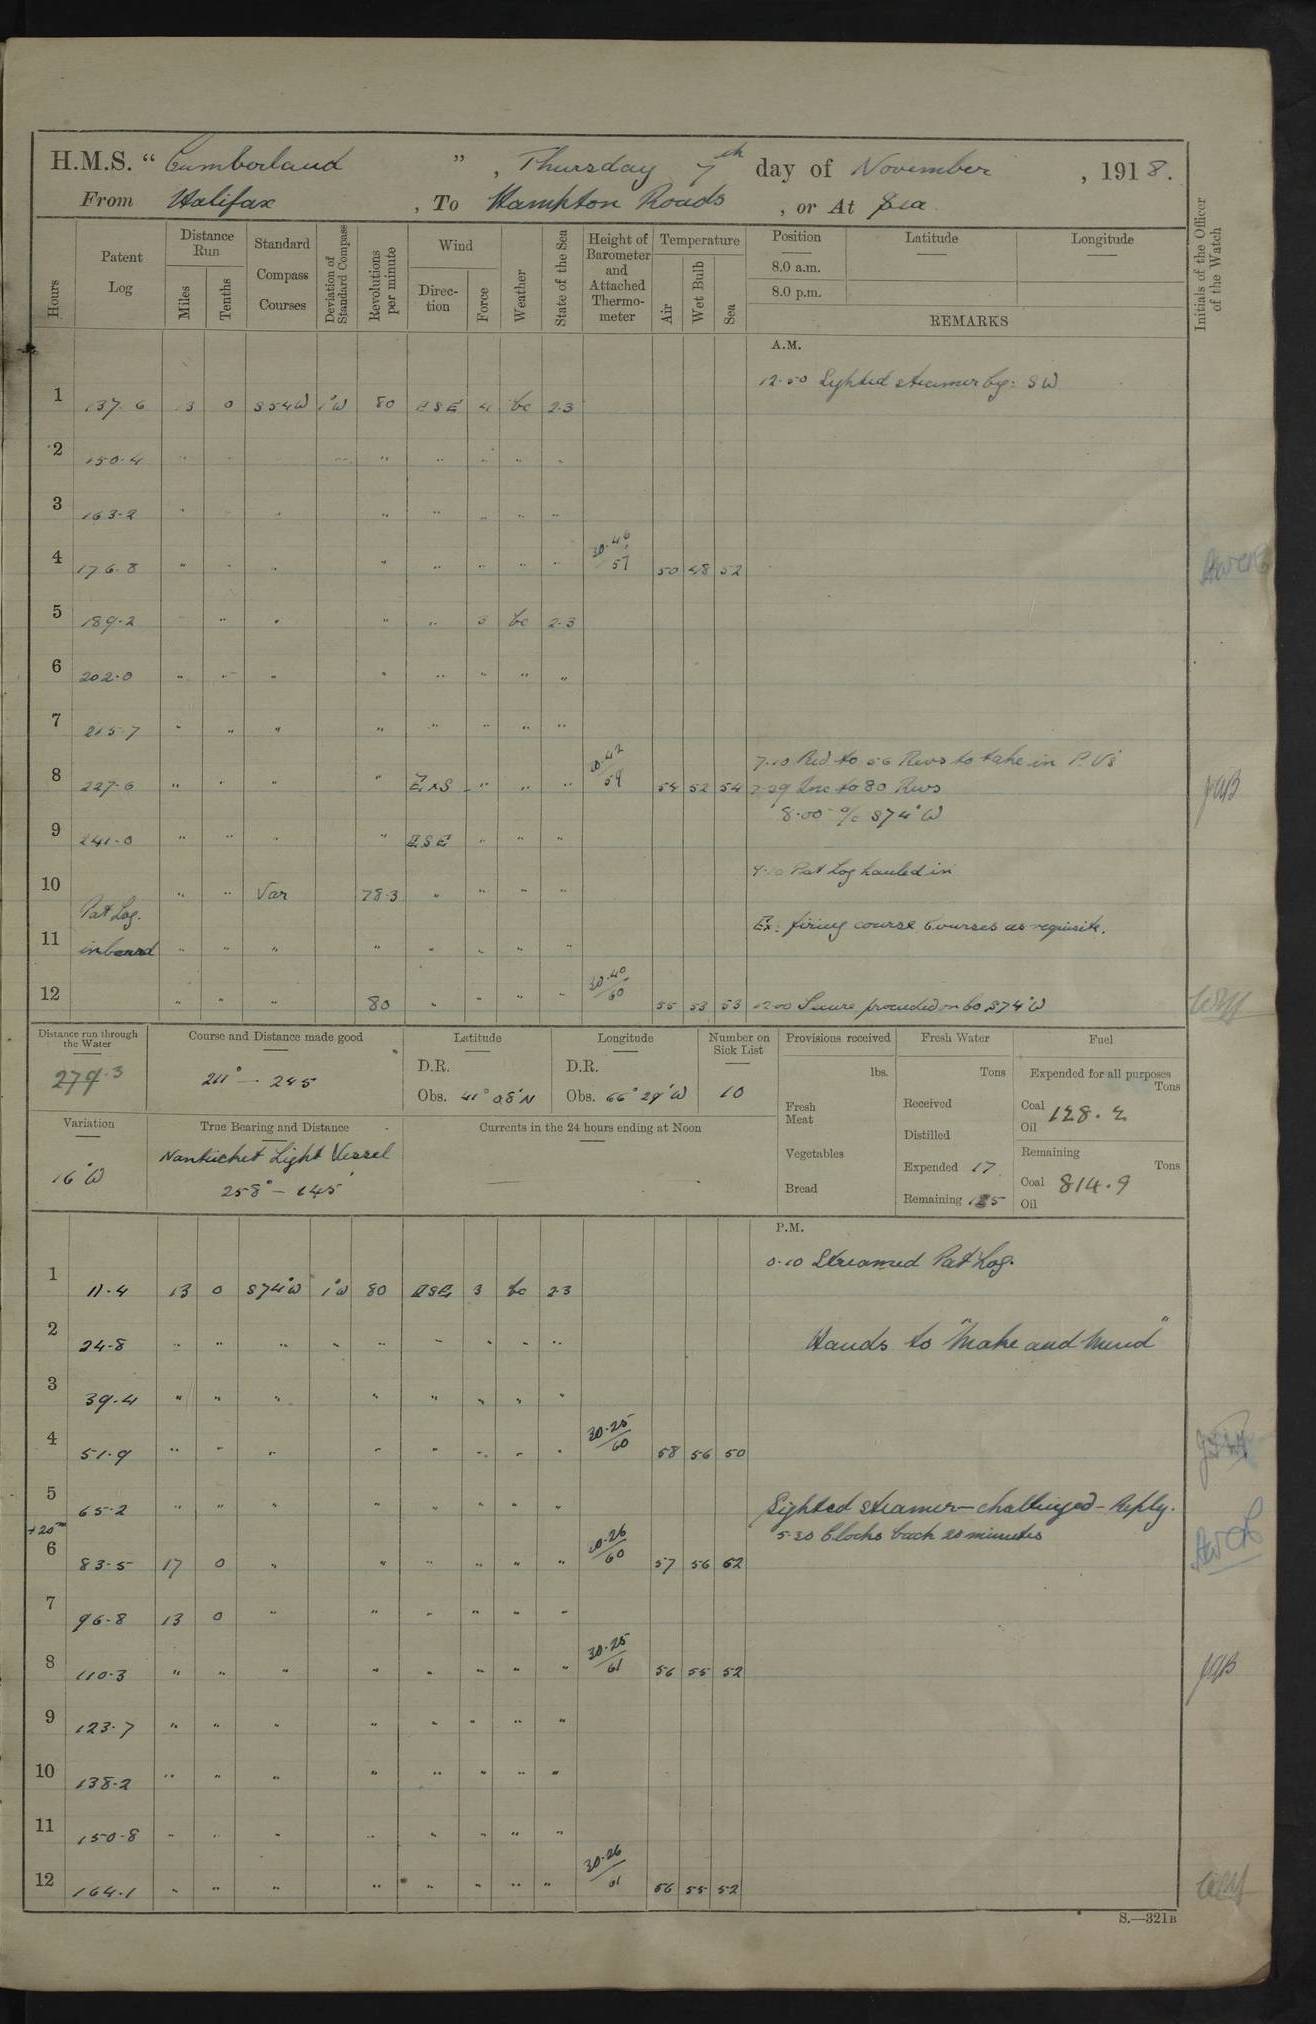 H.M.S. “ Cumberland ” , Thursday 7th day of November , 1918.
From Halifax , To Hampton Roads , or At Sea
Hours Patent Log Distance Run Miles Tenths Standard Compass Courses Deviation of Standard Compass Revolutions per minute Wind Direction Force Weather State of the Sea Height of Barometer and Attached Thermometer Temperature Air Wet Bulb Sea Position Latitude Longitude Initials of the Officer of the Watch
8.0 a.m.
8.0 p.m.
REMARKS
A.M.
12.50 Sighted steamer bg: SW
1 137.6 13 0 S54W 1°W 80 ESE 4 bc 2.3
2 150.4 " " " " " " " " "
3 163.2 " " " " " " " "
4 176.8 " " " " " " " " 30.46/57 50 48 52
5 189.2 " " " " " 3 bc 2.3
6 202.0 " " " " " " " "
7 215.7 " " " " " " " "
7.10 Red to 56 Revs to take in P.V's
8 227.6 " " " " ExS " " " 30.42/59 54 52 54 7.29 Inc to 80 Revs JWB
8.00 a/c S74°W
9 241.0 " " " " ESE " " "
9.10 Pat Log hauled in
10 " " Var 78.3 " " " "
Pat Log.
Ex: firing course Courses as requisite.
11 inboard " " " " " " " "
12 " " " 80 " " " " 30.40/60 55 53 53 12.00 Secure proceeded on Co S74°W
Distance run through the Water Course and Distance made good Latitude Longitude Number on Sick List Provisions received Fresh Water Fuel
279.3 211° — 245 D.R. D.R. lbs. Tons Expended for all purposes Tons
Obs. 41° 08'N Obs. 66° 29'W 10 Fresh Meat Received Coal 128.2
Oil
Variation True Bearing and Distance Currents in the 24 hours ending at Noon Distilled
Nantucket Light Vessel Vegetables Expended 17 Remaining Tons
16°W 258° — 145' — Bread Remaining 125 Coal 814.9
Oil
P.M.
0.10 Streamed Pat Log.
1 11.4 13 0 S74°W 1°W 80 ESE 3 bc 2.3
2 24.8 " " " " " " " " " Hands to "Make and Mend"
3 39.4 " " " " " " " "
4 51.9 " " " " " " " " 30.25/60 58 56 50
5 65.2 " " " " " " " " Sighted steamer – challenged – Reply.
+20m 5.30 Clocks back 20 minutes
6 83.5 17 0 " " " " " " 30.26/60 57 56 52
7 96.8 13 0 " " " " " "
8 110.3 " " " " " " " " 30.25/61 56 55 52 JWB
9 123.7 " " " " " " " "
10 138.2 " " " " " " " "
11 150.8 " " " " " " " "
12 164.1 " " " " " " " " 30.26/61 56 55 52
S.—321B